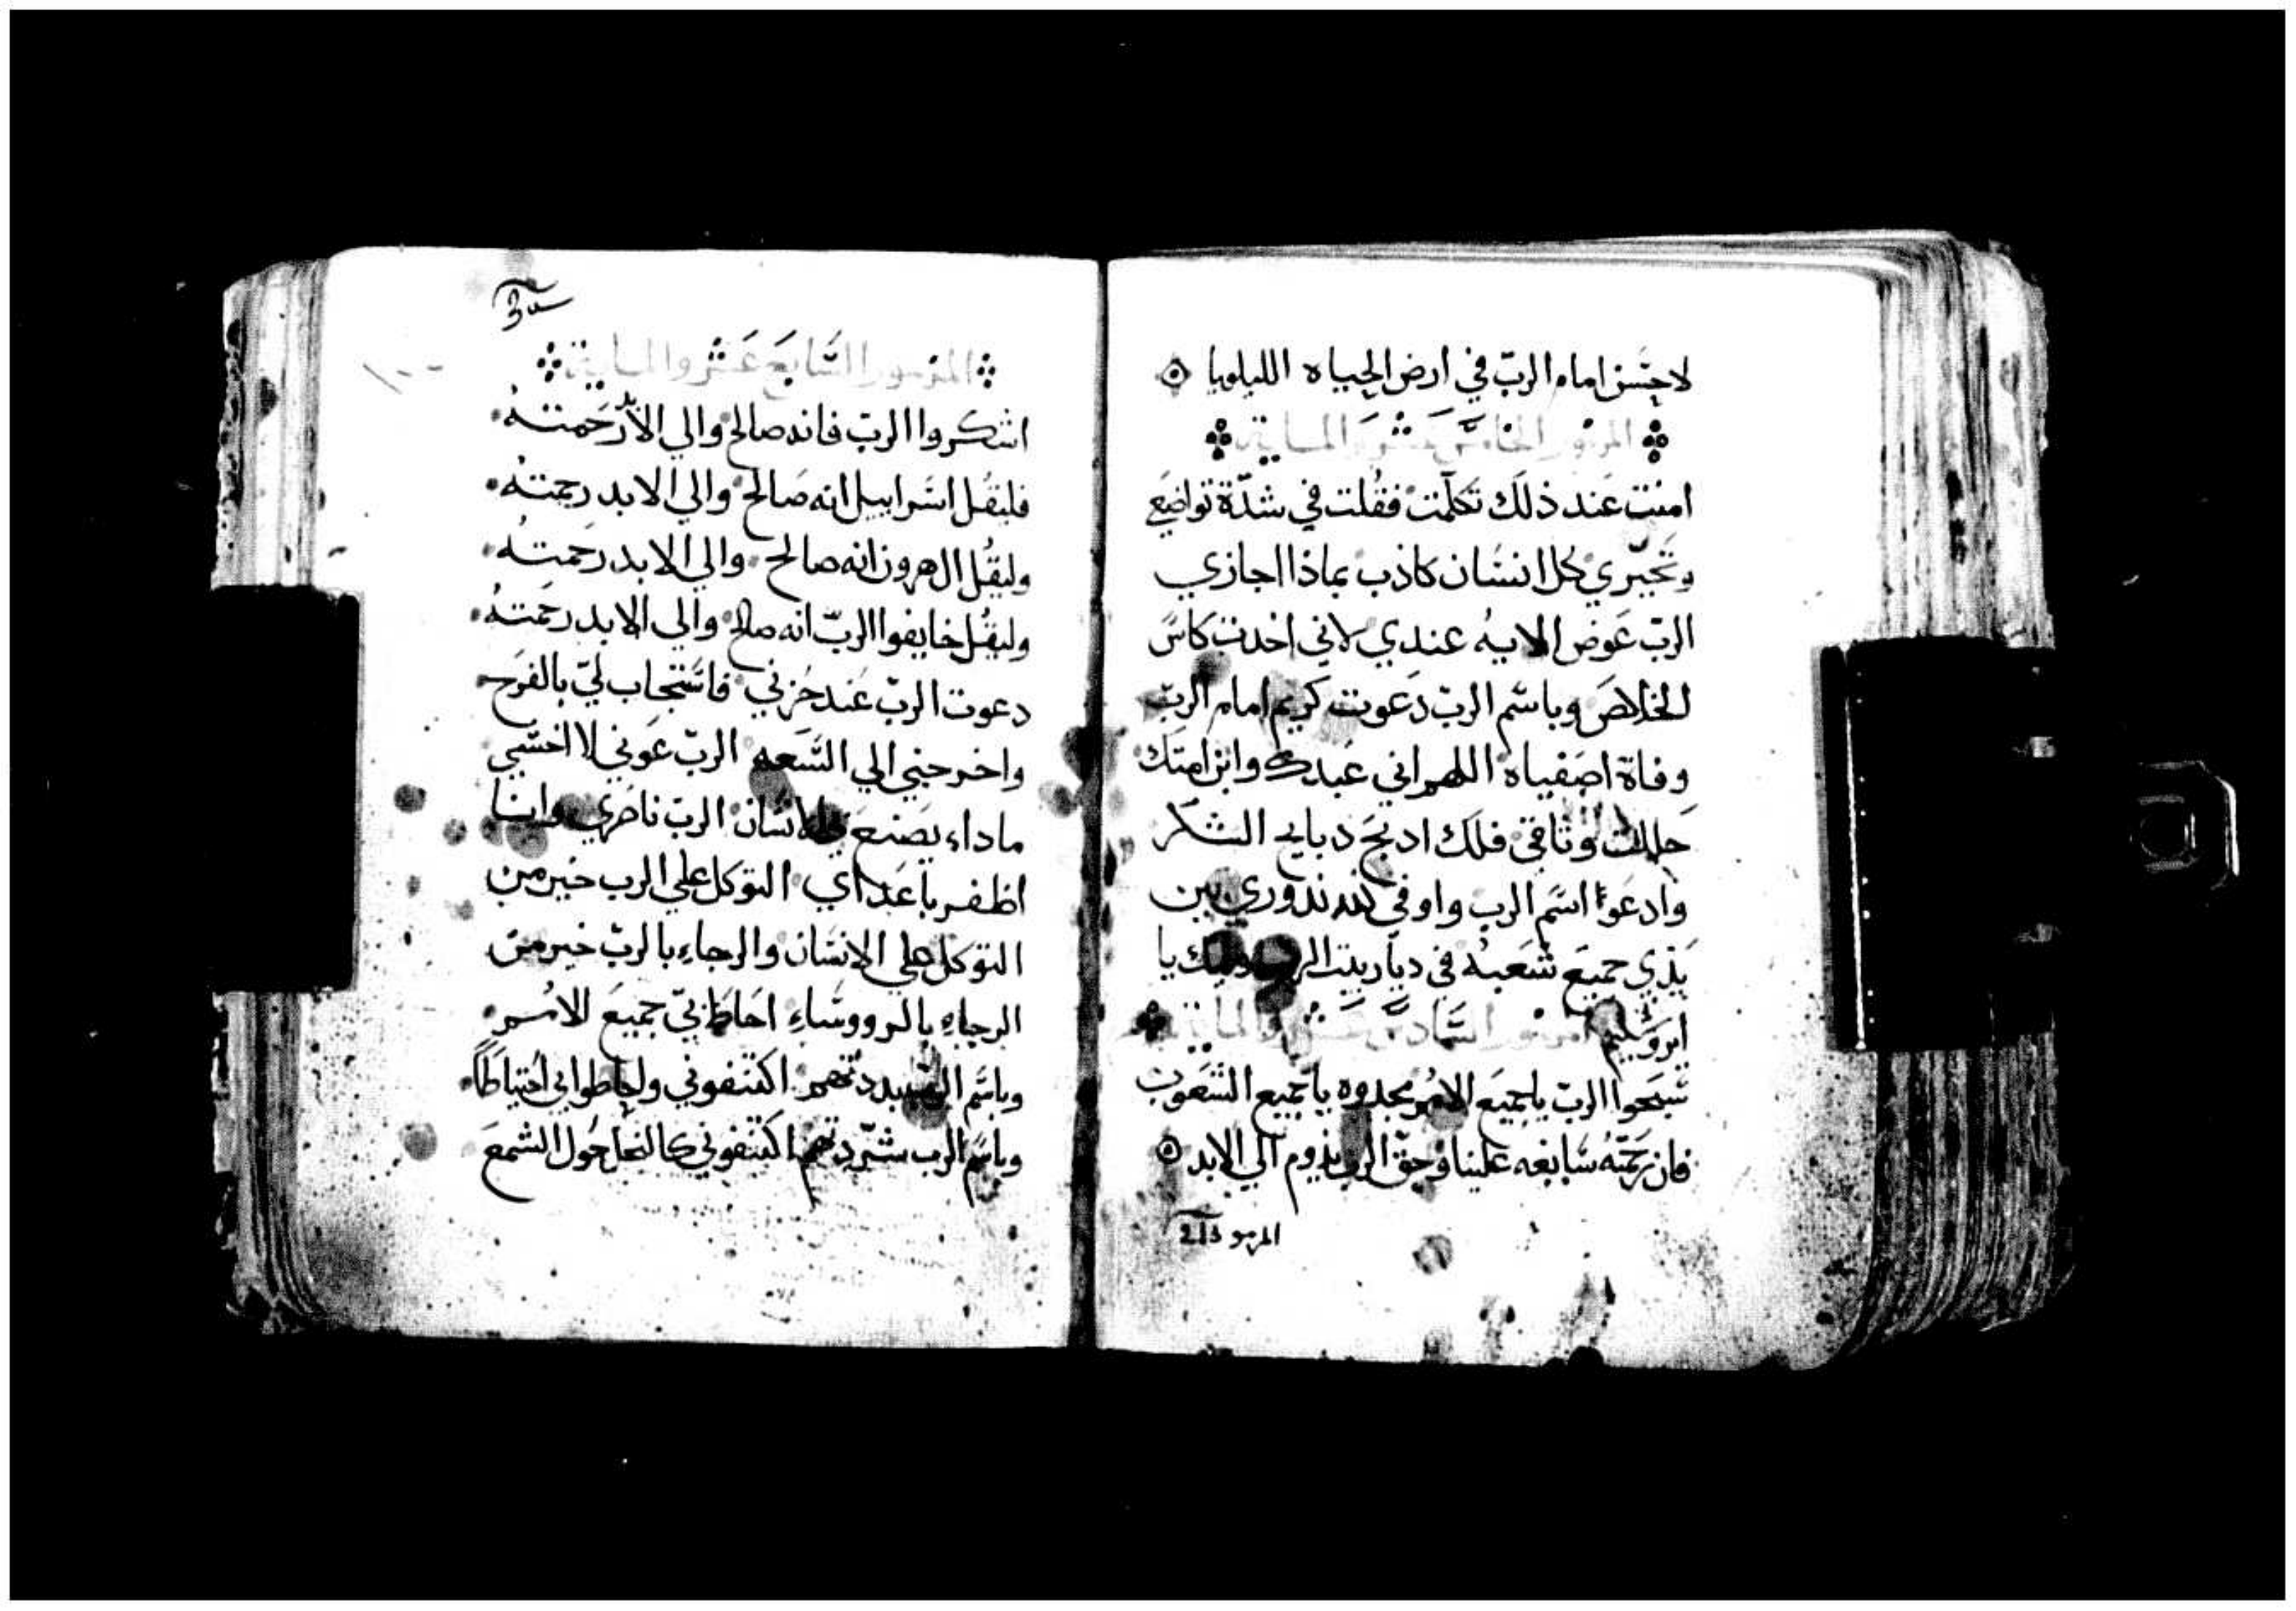 لاحسن امام الرب في ارض الحياه الليلويا
المزمور الخامس عشر والماية
امنت عند ذلك تكلمت فقلت في شدة تواضع
وتحيري كل انسان كاذب بماذا اجازي
الرب عوض الايه عندي لاني اخدت كاس
الخلاص وباسم الرب دعوت كريم امام الرب
وفاة اصفياه اللهم اني عبدك وابن امتك
حللت وثاقي فلك ادبح دبايح الشكر
وادعوا اسم الرب واوفي ندوري بين
يذي جميع شعبه في ديار بيت الرب يا
المزمور السادس عشر والماية
سبحوا الرب يا جميع الامم مجدوه يا جميع الشعوب
فان رحمته سابغه علينا وحق الرب يذوم الي الابد
المزمو
المزمور السابع عشر والماية
١٠٠
اشكروا الرب فانه صالح والي الابد رحمته
فليقل اسراييل انه صالح والي الابد رحمته
وليقل ال هرون انه صالح والي الابد رحمته
وليقل خايفوا الرب انه صالح والي الابد رحمته
دعوت الرب عند حزني فاستجاب لي بالفرح
واخرجني الي السعه الرب عوني لا اخشي
ماداء يصنع الانسان الرب ناصري وانا
اظفر باعداي التوكل علي الرب خير من
التوكل علي الانسان والرجاء بالرب خير من
الرجاء بالرووساء احاط بي جميع الامم
وباسم الرب بددتهم اكتنفوني واحاطوا بي احتياطا
وباسم الرب شردتهم اكتنفوني كالنحل حول الشمع